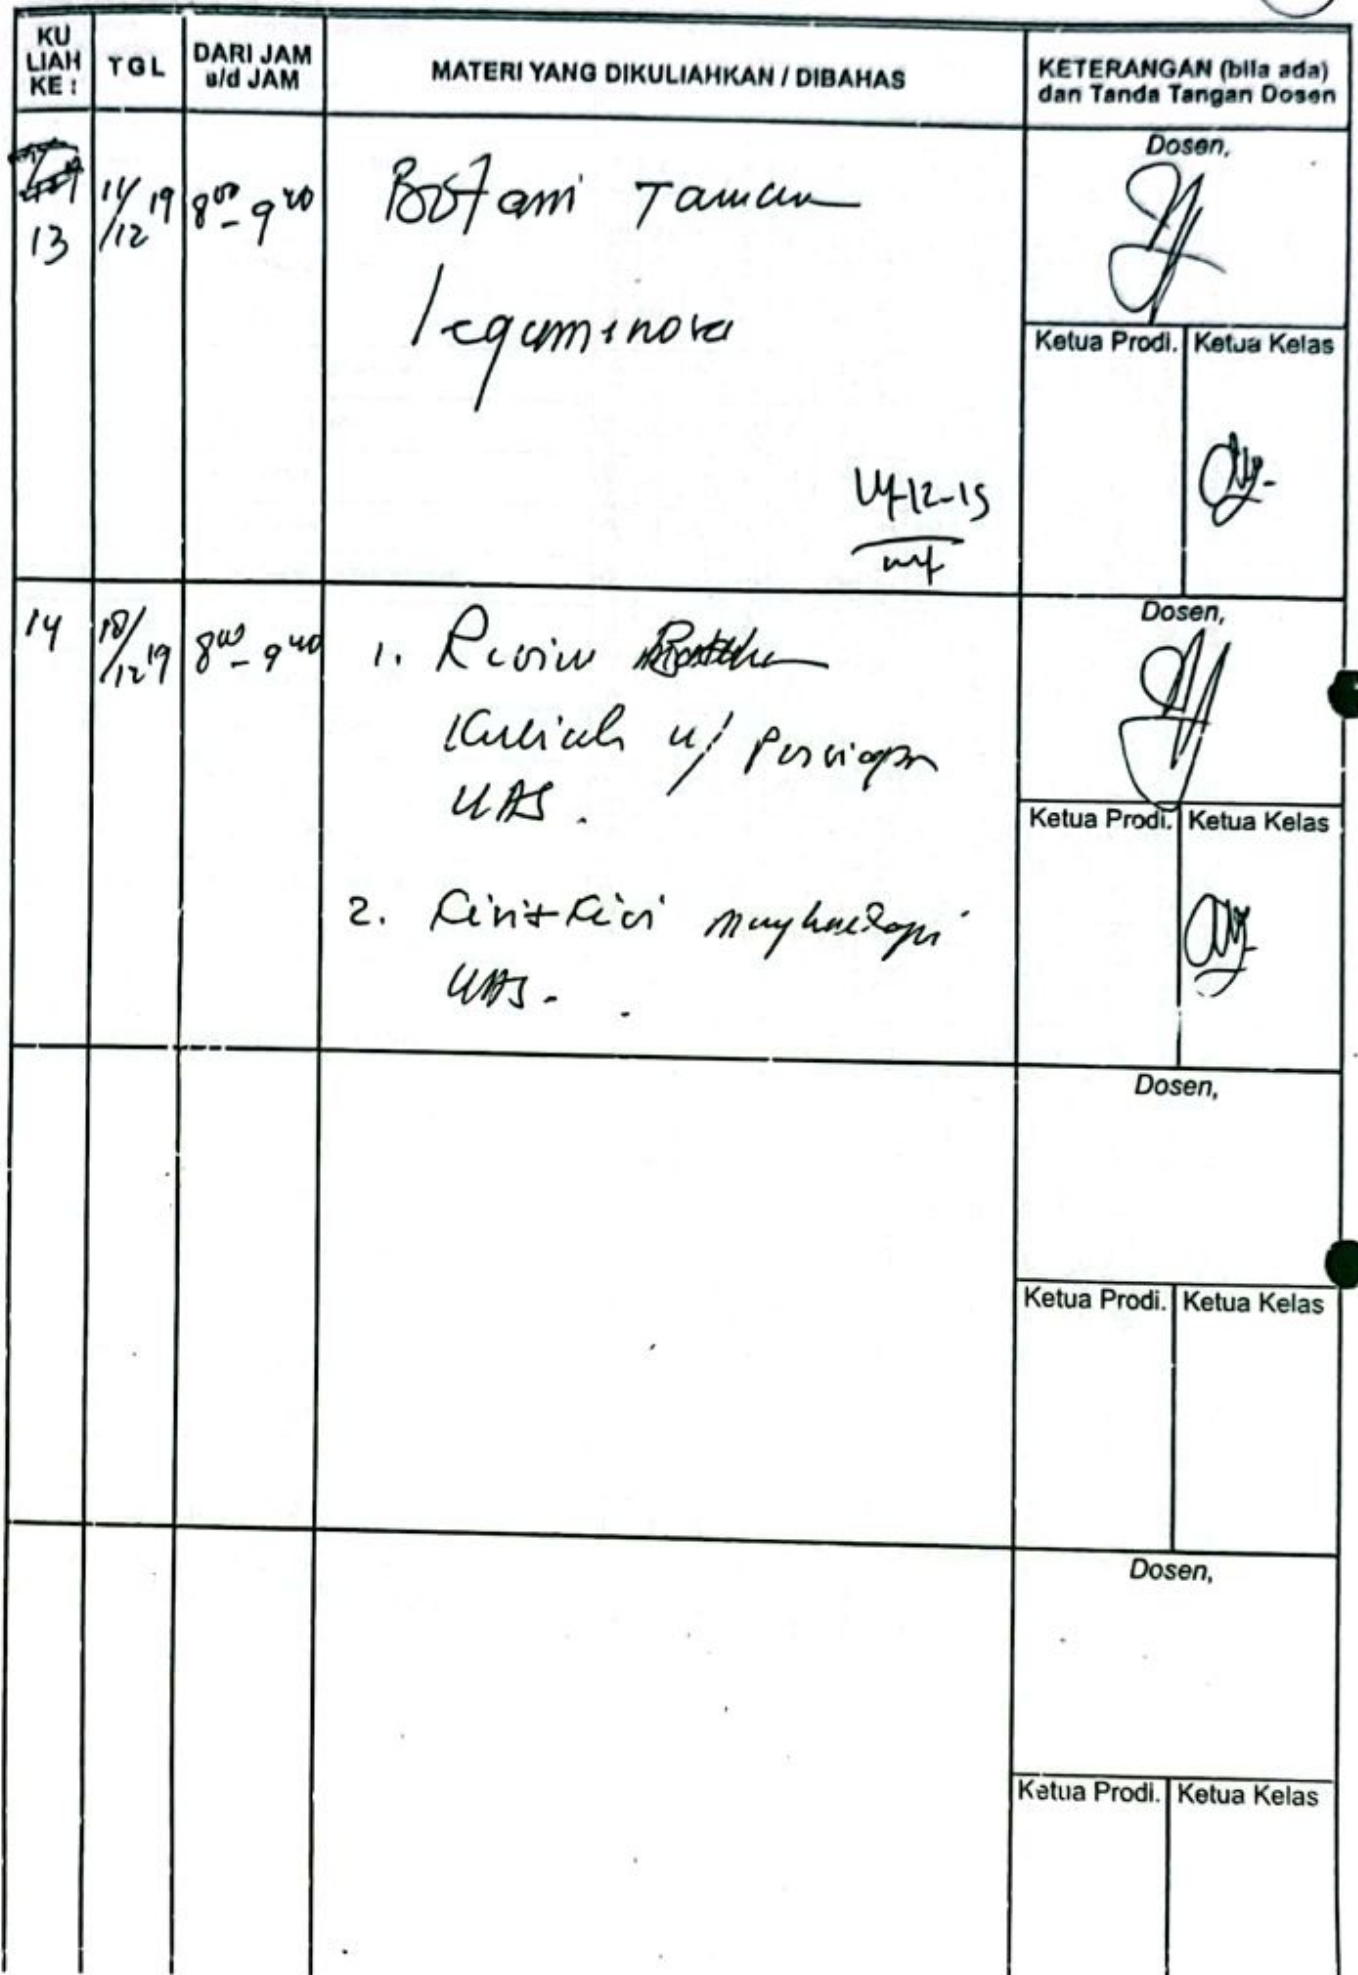 KU LIAH KE :
TGL
DARI JAM s/d JAM
MATERI YANG DIKULIAHKAN / DIBAHAS
KETERANGAN (bila ada) dan Tanda Tangan Dosen
13
11/12 19
8⁰⁰ - 9⁴⁰
Botani Tanaman
leguminosa
Dosen,
Ketua Prodi.
Ketua Kelas
14
18/12 19
8⁰⁰ - 9⁴⁰
1. Review
Kuliah u/ Persiapan
UAS.
2. Kisi-kisi menghadapi
UAS.
Dosen,
Ketua Prodi.
Ketua Kelas
Dosen,
Ketua Prodi.
Ketua Kelas
Dosen,
Ketua Prodi.
Ketua Kelas